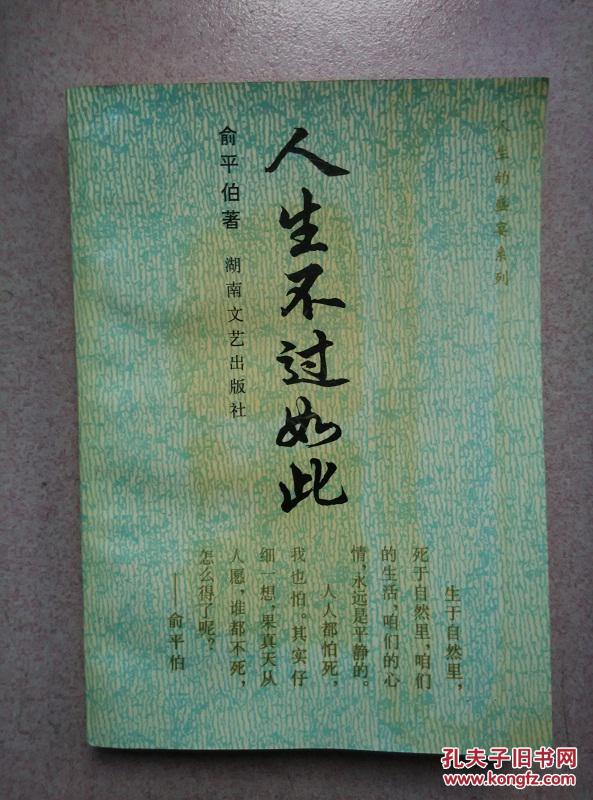 人生的盛宴系列
人生不过如此
俞平伯著
湖南文艺出版社
生于自然里，
死于自然里，咱们
的生活，咱们的心
情，永远是平静的。
人人都怕死，
我也怕。其实仔
细一想，果真天从
人愿，谁都不死，
怎么得了呢？
——俞平伯
孔夫子旧书网
www.kongfz.com